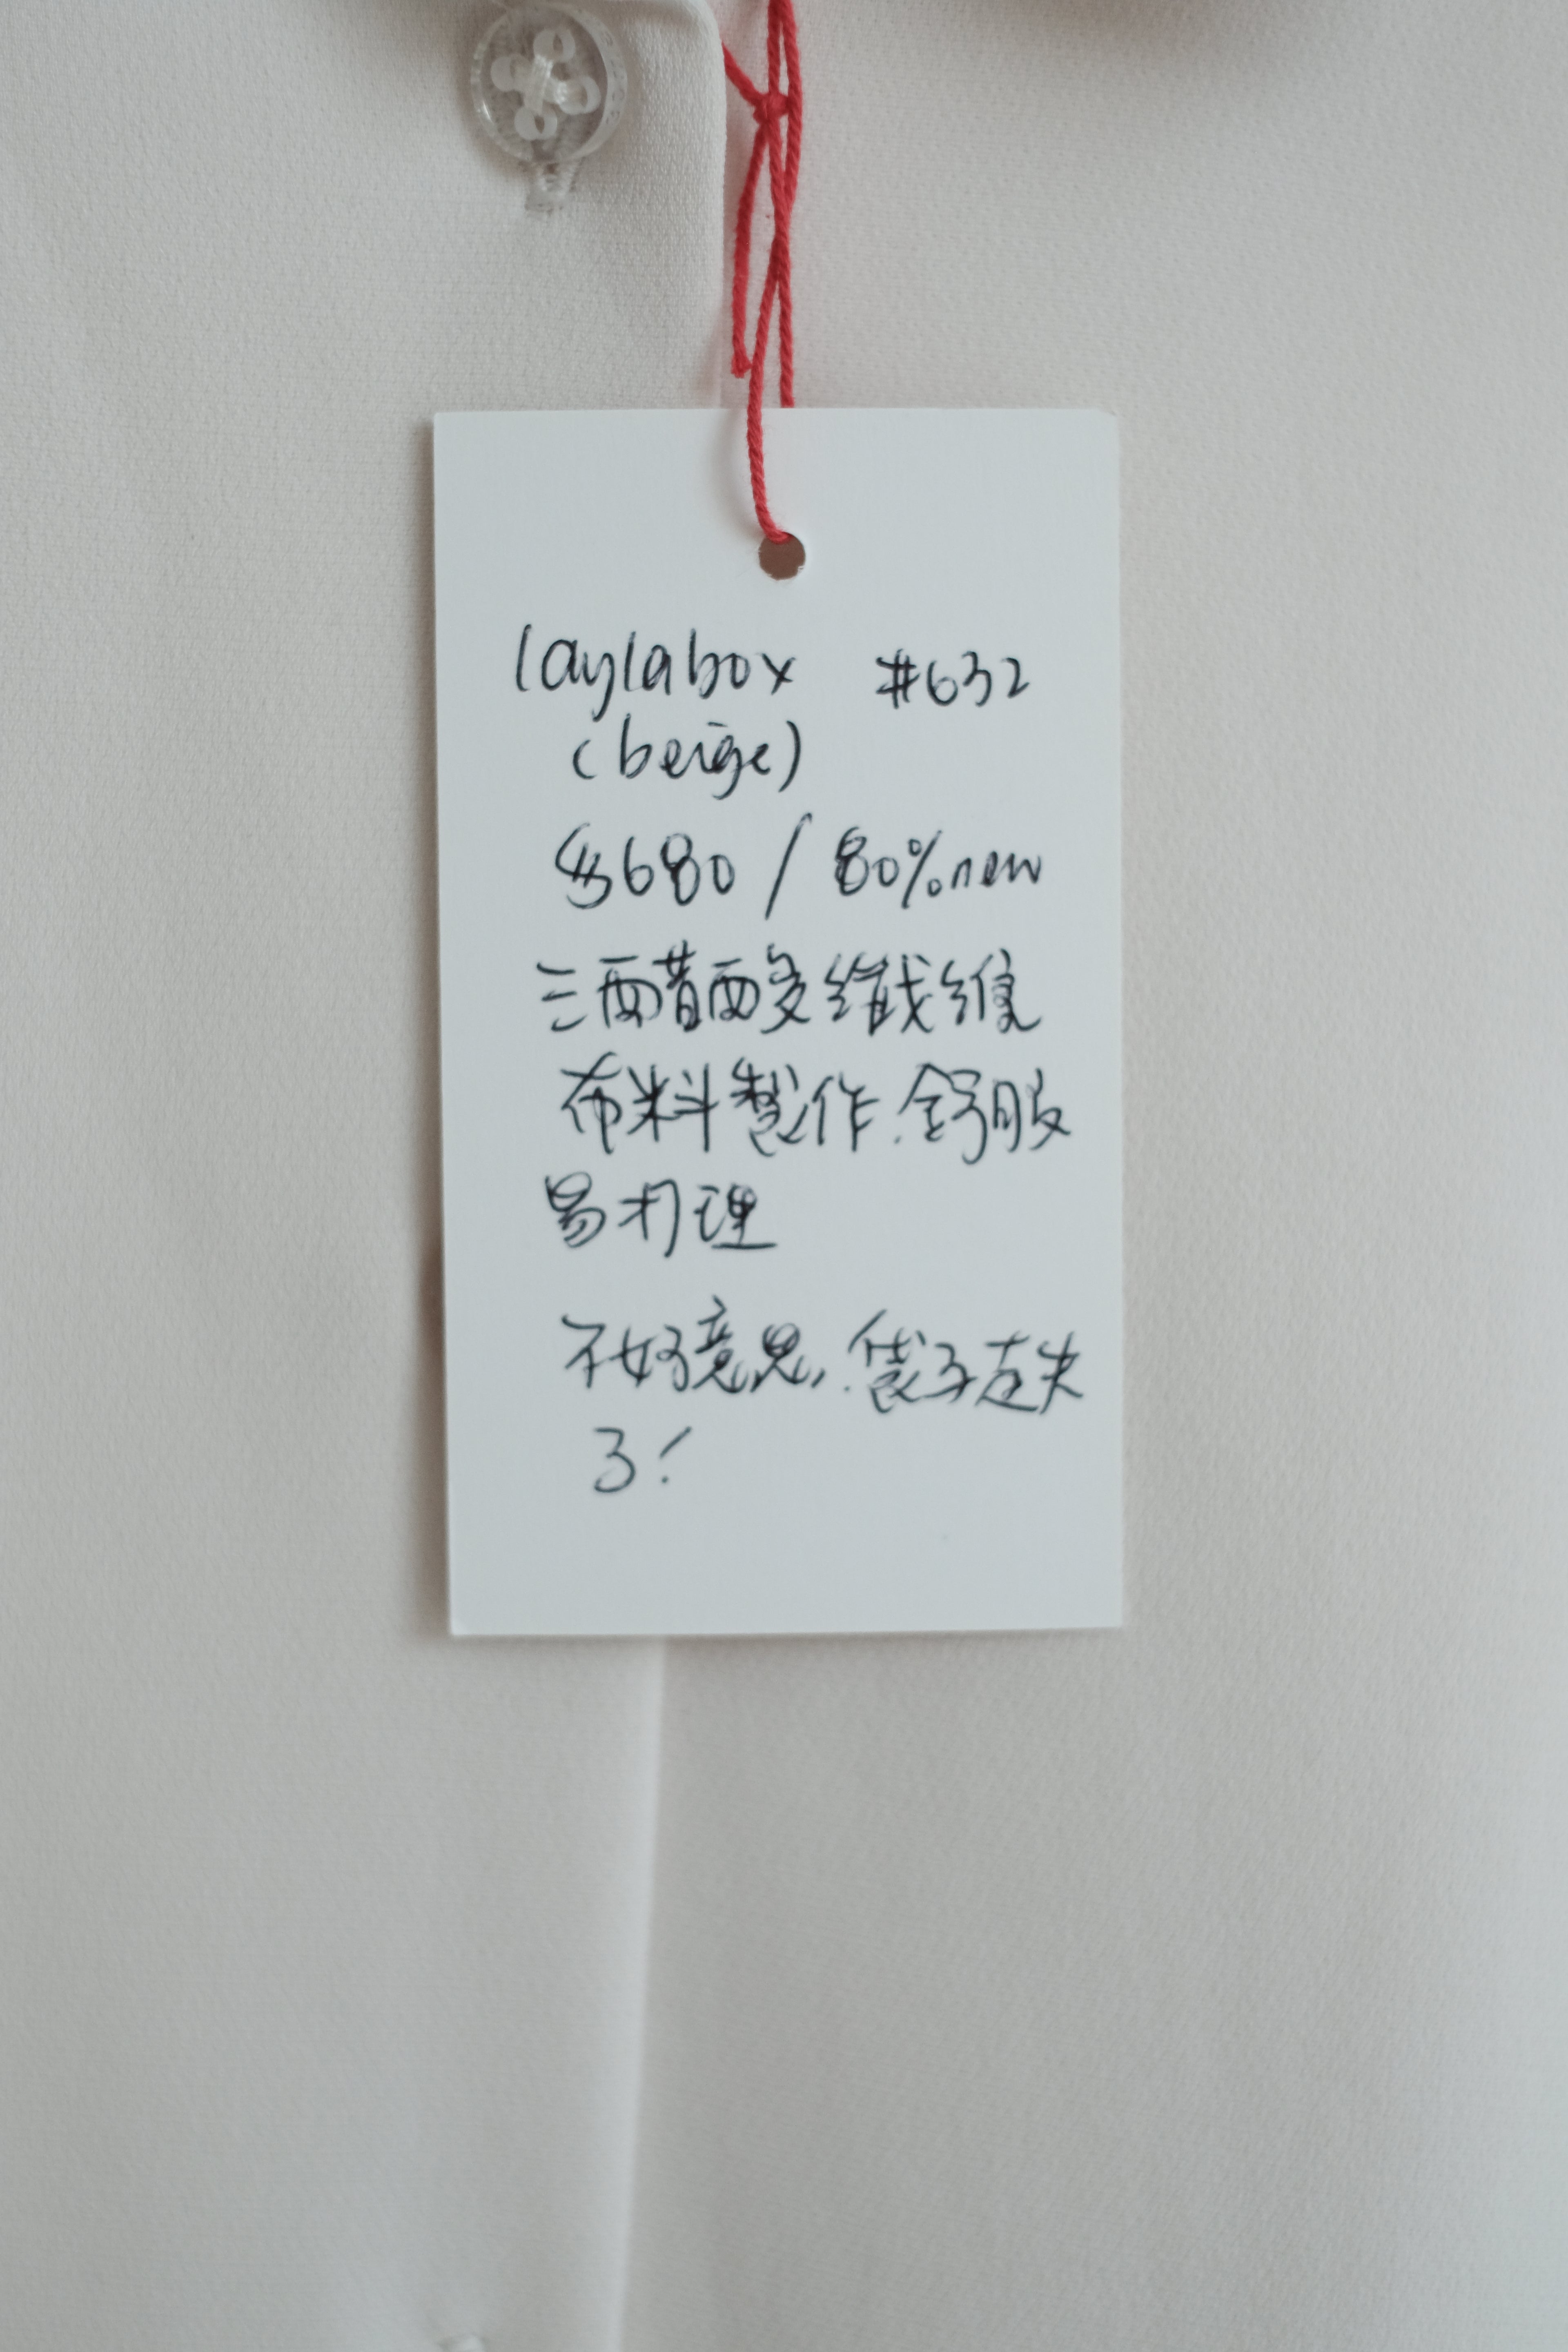 laylabox #632
(beige)
$680 / 80%new
三醋酸纖維
布料製作.舒服
易打理
不好意思,袋子走失
了!